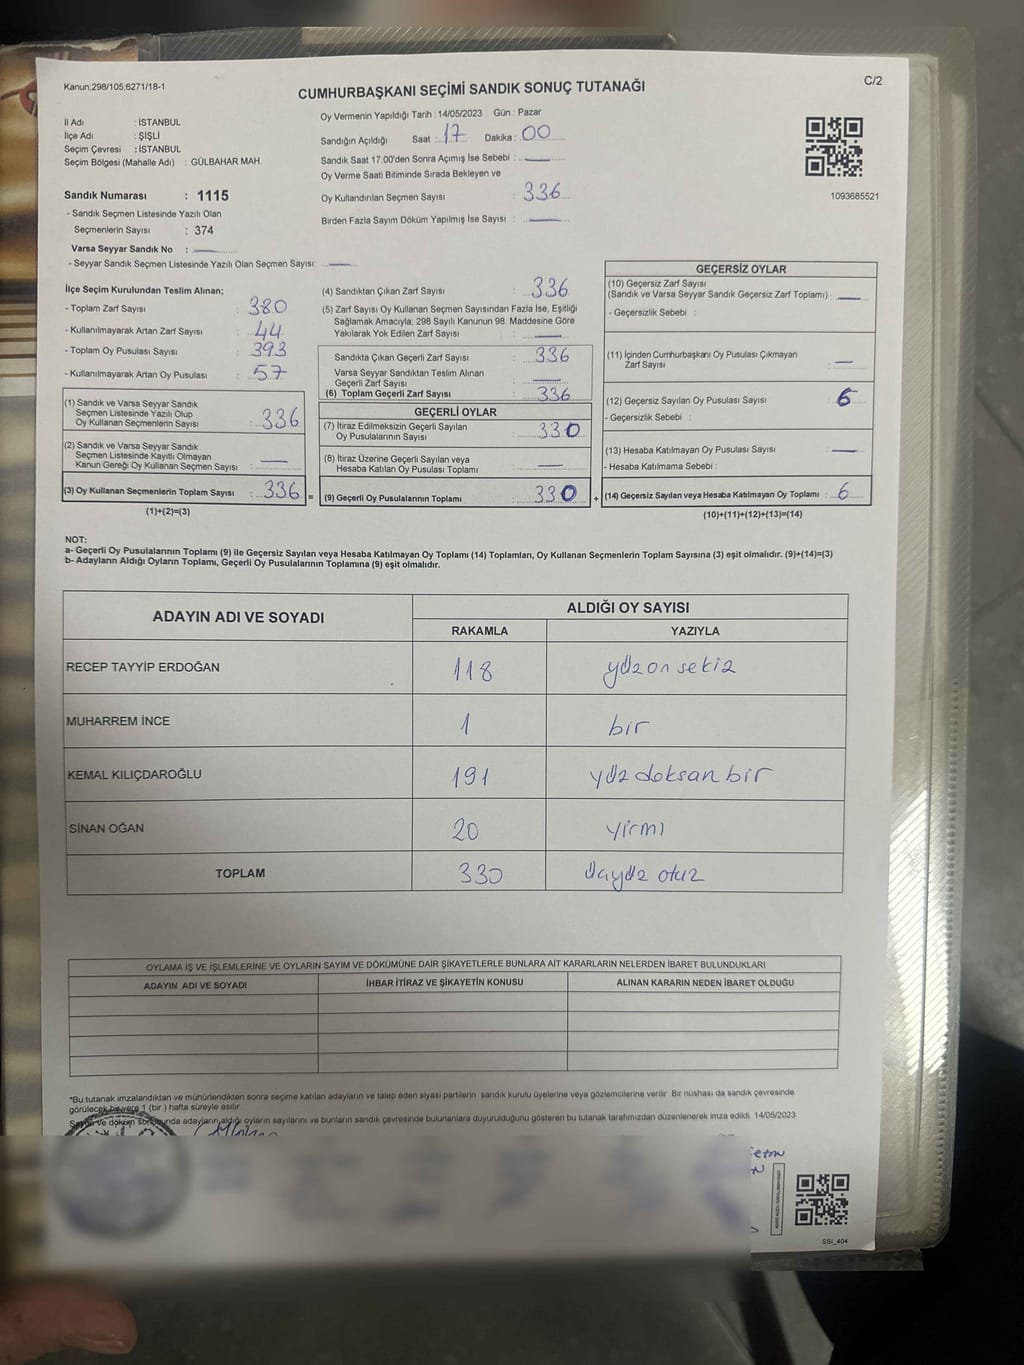 Kanun;298/105;6271/18-1
CUMHURBAŞKANI SEÇİMİ SANDIK SONUÇ TUTANAĞI
C/2
İl Adı : İSTANBUL
İlçe Adı : ŞİŞLİ
Seçim Çevresi : İSTANBUL
Seçim Bölgesi (Mahalle Adı) : GÜLBAHAR MAH.
Sandık Numarası : 1115
- Sandık Seçmen Listesinde Yazılı Olan
Seçmenlerin Sayısı : 374
Varsa Seyyar Sandık No :
- Seyyar Sandık Seçmen Listesinde Yazılı Olan Seçmen Sayısı:
Oy Vermenin Yapıldığı Tarih : 14/05/2023 Gün : Pazar
Sandığın Açıldığı Saat : 17 Dakika : 00
Sandık Saat 17:00'den Sonra Açımış İse Sebebi :
Oy Verme Saati Bitiminde Sırada Bekleyen ve
Oy Kullandırılan Seçmen Sayısı : 336
Birden Fazla Sayım Döküm Yapılmış İse Sayısı :
1093685521
İlçe Seçim Kurulundan Teslim Alınan;
- Toplam Zarf Sayısı : 380
- Kullanılmayarak Artan Zarf Sayısı : 44
- Toplam Oy Pusulası Sayısı : 393
- Kullanılmayarak Artan Oy Pusulası : 57
(1) Sandık ve Varsa Seyyar Sandık
Seçmen Listesinde Yazılı Olup
Oy Kullanan Seçmenlerin Sayısı : 336
(2) Sandık ve Varsa Seyyar Sandık
Seçmen Listesinde Kayıtlı Olmayan
Kanun Gereği Oy Kullanan Seçmen Sayısı :
(3) Oy Kullanan Seçmenlerin Toplam Sayısı : 336 =
(1)+(2)=(3)
(4) Sandıktan Çıkan Zarf Sayısı : 336
(5) Zarf Sayısı Oy Kullanan Seçmen Sayısından Fazla İse, Eşitliği
Sağlamak Amacıyla, 298 Sayılı Kanunun 98. Maddesine Göre
Yakılarak Yok Edilen Zarf Sayısı :
Sandıkta Çıkan Geçerli Zarf Sayısı : 336
Varsa Seyyar Sandıktan Teslim Alınan
Geçerli Zarf Sayısı :
(6) Toplam Geçerli Zarf Sayısı : 336
GEÇERLİ OYLAR
(7) İtiraz Edilmeksizin Geçerli Sayılan
Oy Pusulalarının Sayısı : 330
(8) İtiraz Üzerine Geçerli Sayılan veya
Hesaba Katılan Oy Pusulası Toplamı :
(9) Geçerli Oy Pusulalarının Toplamı : 330 +
GEÇERSİZ OYLAR
(10) Geçersiz Zarf Sayısı
(Sandık ve Varsa Seyyar Sandık Geçersiz Zarf Toplamı) :
- Geçersizlik Sebebi :
(11) İçinden Cumhurbaşkanı Oy Pusulası Çıkmayan
Zarf Sayısı :
(12) Geçersiz Sayılan Oy Pusulası Sayısı : 6
- Geçersizlik Sebebi :
(13) Hesaba Katılmayan Oy Pusulası Sayısı :
- Hesaba Katılmama Sebebi :
(14) Geçersiz Sayılan veya Hesaba Katılmayan Oy Toplamı : 6
(10)+(11)+(12)+(13)=(14)
NOT:
a- Geçerli Oy Pusulalarının Toplamı (9) ile Geçersiz Sayılan veya Hesaba Katılmayan Oy Toplamı (14) Toplamları, Oy Kullanan Seçmenlerin Toplam Sayısına (3) eşit olmalıdır. (9)+(14)=(3)
b- Adayların Aldığı Oyların Toplamı, Geçerli Oy Pusulalarının Toplamına (9) eşit olmalıdır.
ADAYIN ADI VE SOYADI
ALDIĞI OY SAYISI
RAKAMLA YAZIYLA
RECEP TAYYİP ERDOĞAN 118 yüzon sekiz
MUHARREM İNCE 1 bir
KEMAL KILIÇDAROĞLU 191 yüz doksan bir
SİNAN OĞAN 20 yirmi
TOPLAM 330 üçyüz otuz
OYLAMA İŞ VE İŞLEMLERİNE VE OYLARIN SAYIM VE DÖKÜMÜNE DAİR ŞİKAYETLERLE BUNLARA AİT KARARLARIN NELERDEN İBARET BULUNDUKLARI
ADAYIN ADI VE SOYADI İHBAR İTİRAZ VE ŞİKAYETİN KONUSU ALINAN KARARIN NEDEN İBARET OLDUĞU
"Bu tutanak imzalandıktan ve mühürlendikten sonra seçime katılan adayların ve talep eden siyasi partilerin sandık kurulu üyelerine veya gözlemcilerine verilir. Bir nüshası da sandık çevresinde
görülecek bir yere 1 (bir) hafta süreyle asılır
Sayım ve döküm sonucunda adayların aldığı oyların sayılarını ve bunların sandık çevresinde bulunanlara duyurulduğunu gösteren bu tutanak tarafımızdan düzenlenerek imza edildi. 14/05/2023
SSI_404